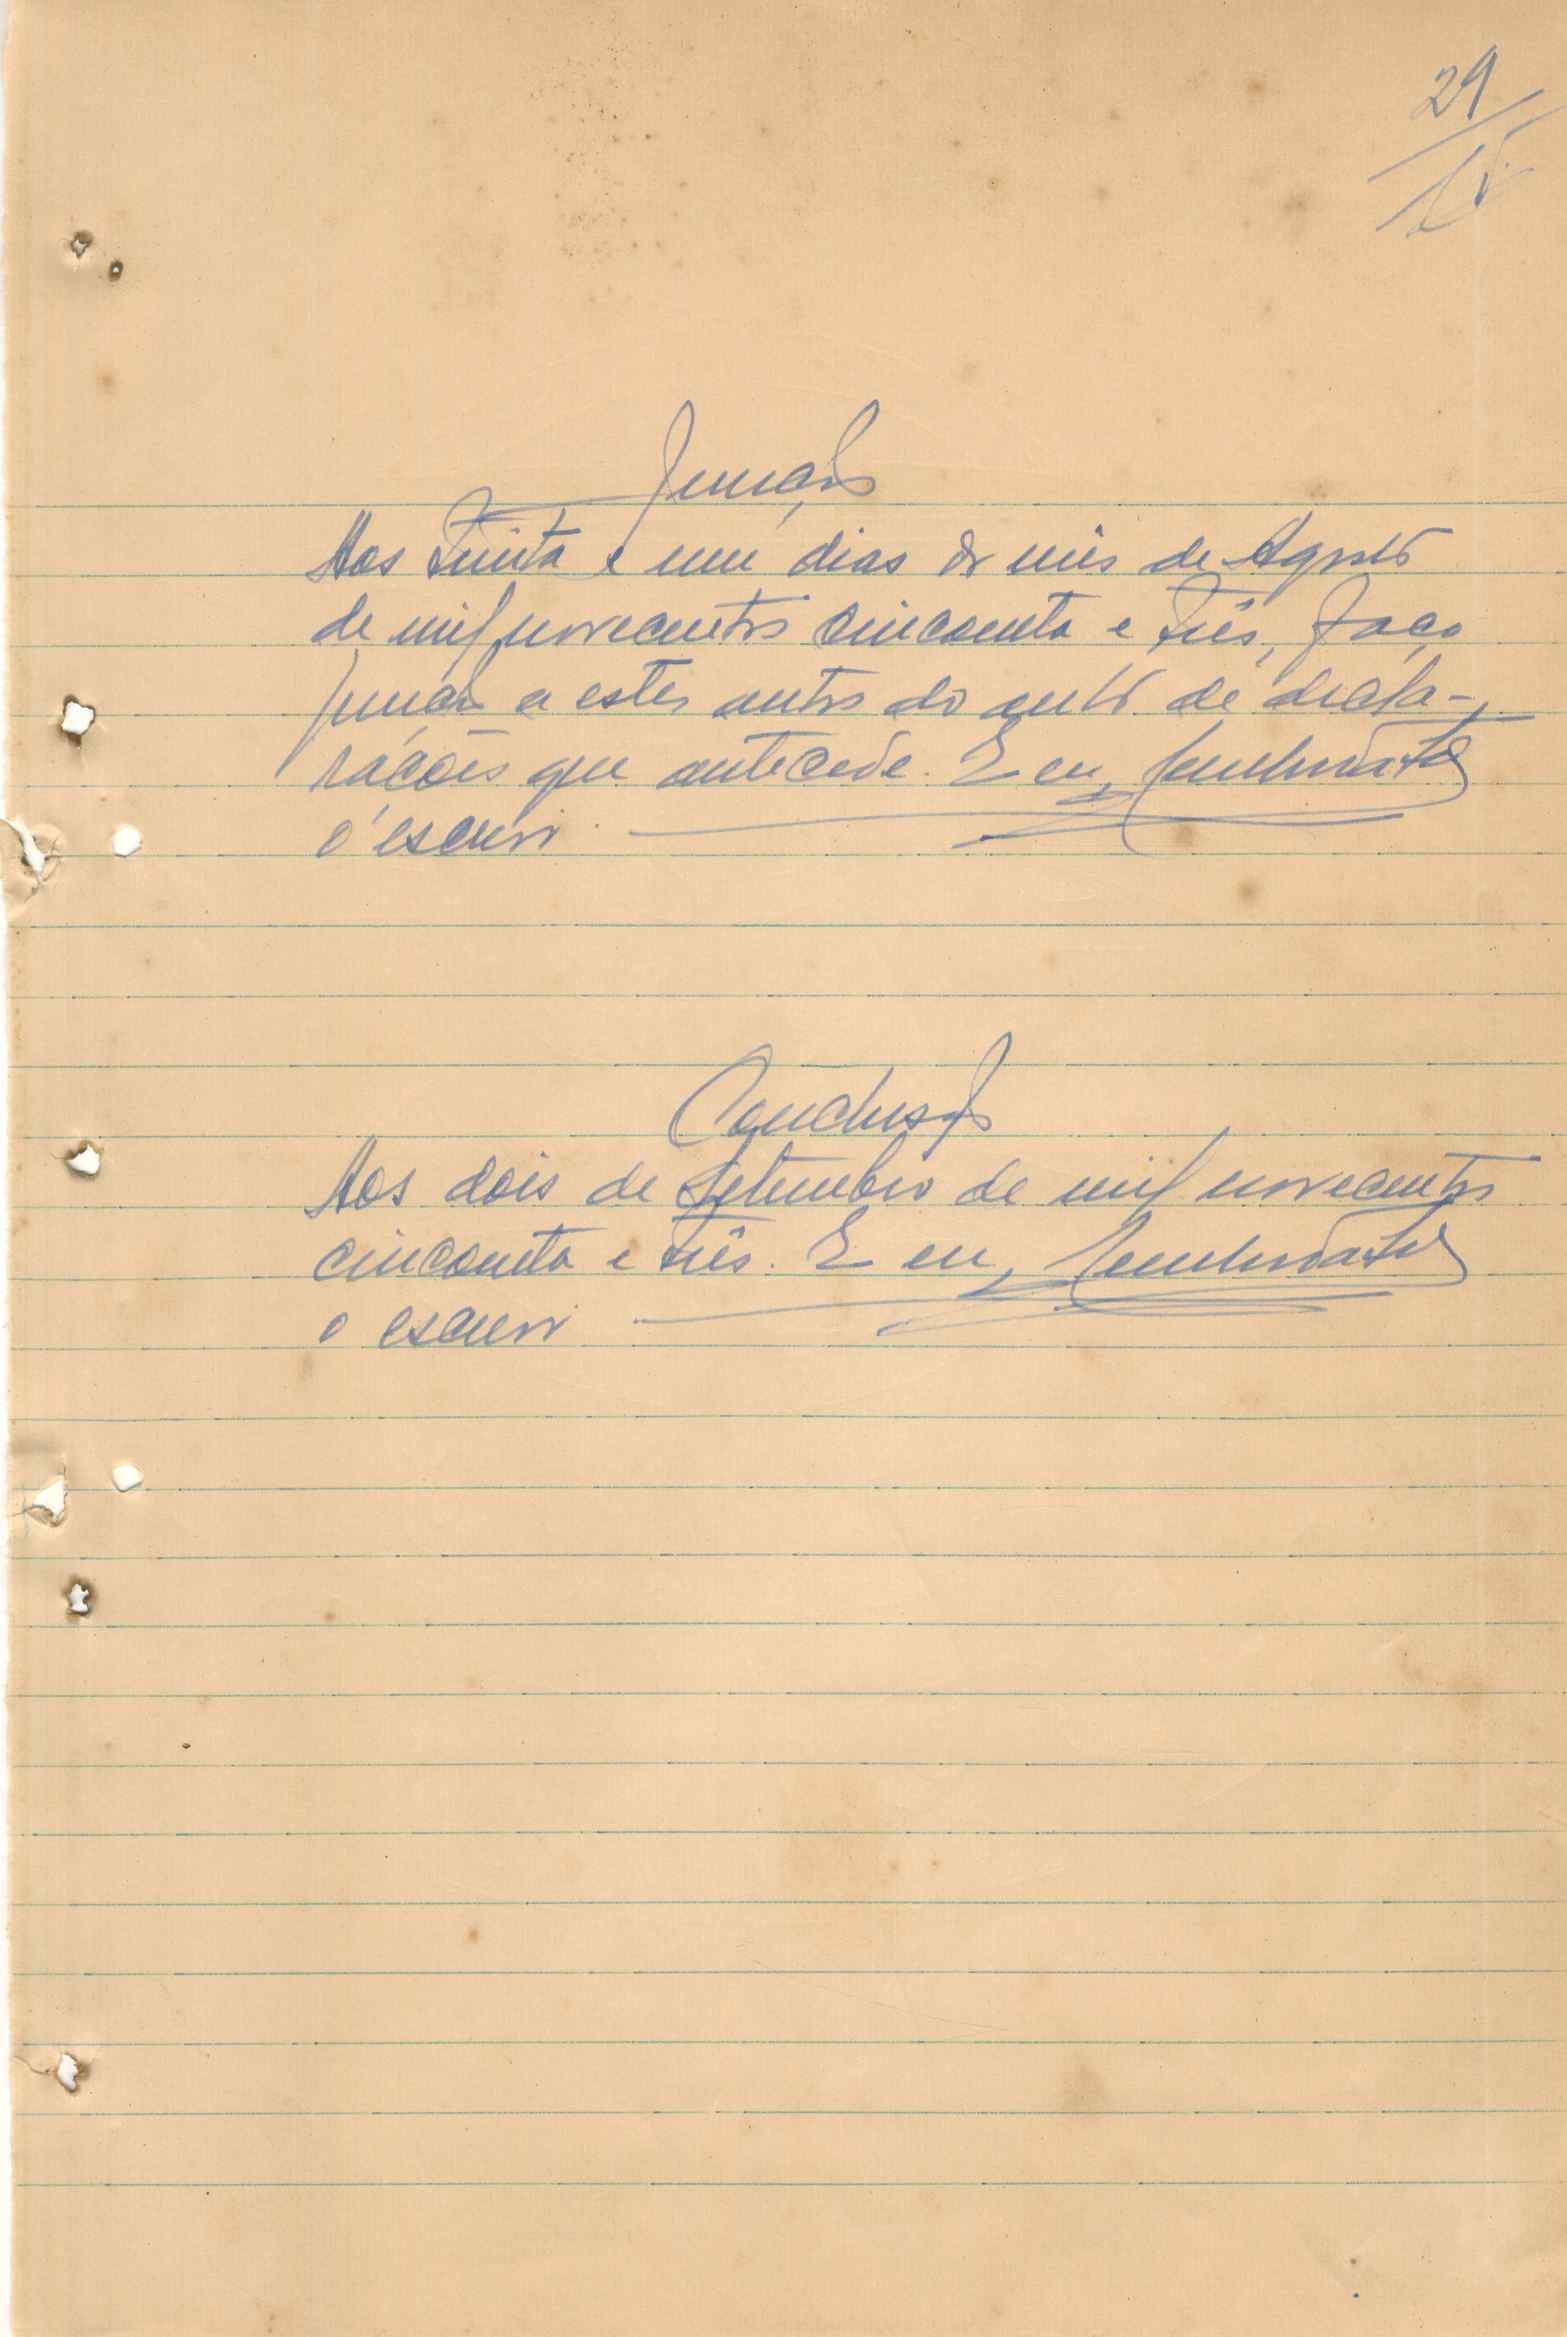 29
Junção
Aos Trinta e um dias do mês de Agosto
de mil novecentos cincoenta e três, faço
junção a estes autos do auto de decla-
rações que antecede. E eu,
o escrevi
Conclusão
Aos dois de Setembro de mil novecentos
cincoenta e três. E eu,
o escrevi